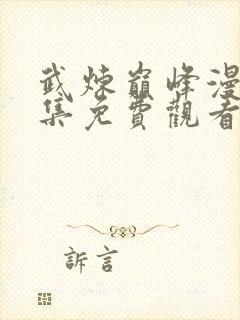 武煉巔峰漫
集免費觀看
訴言